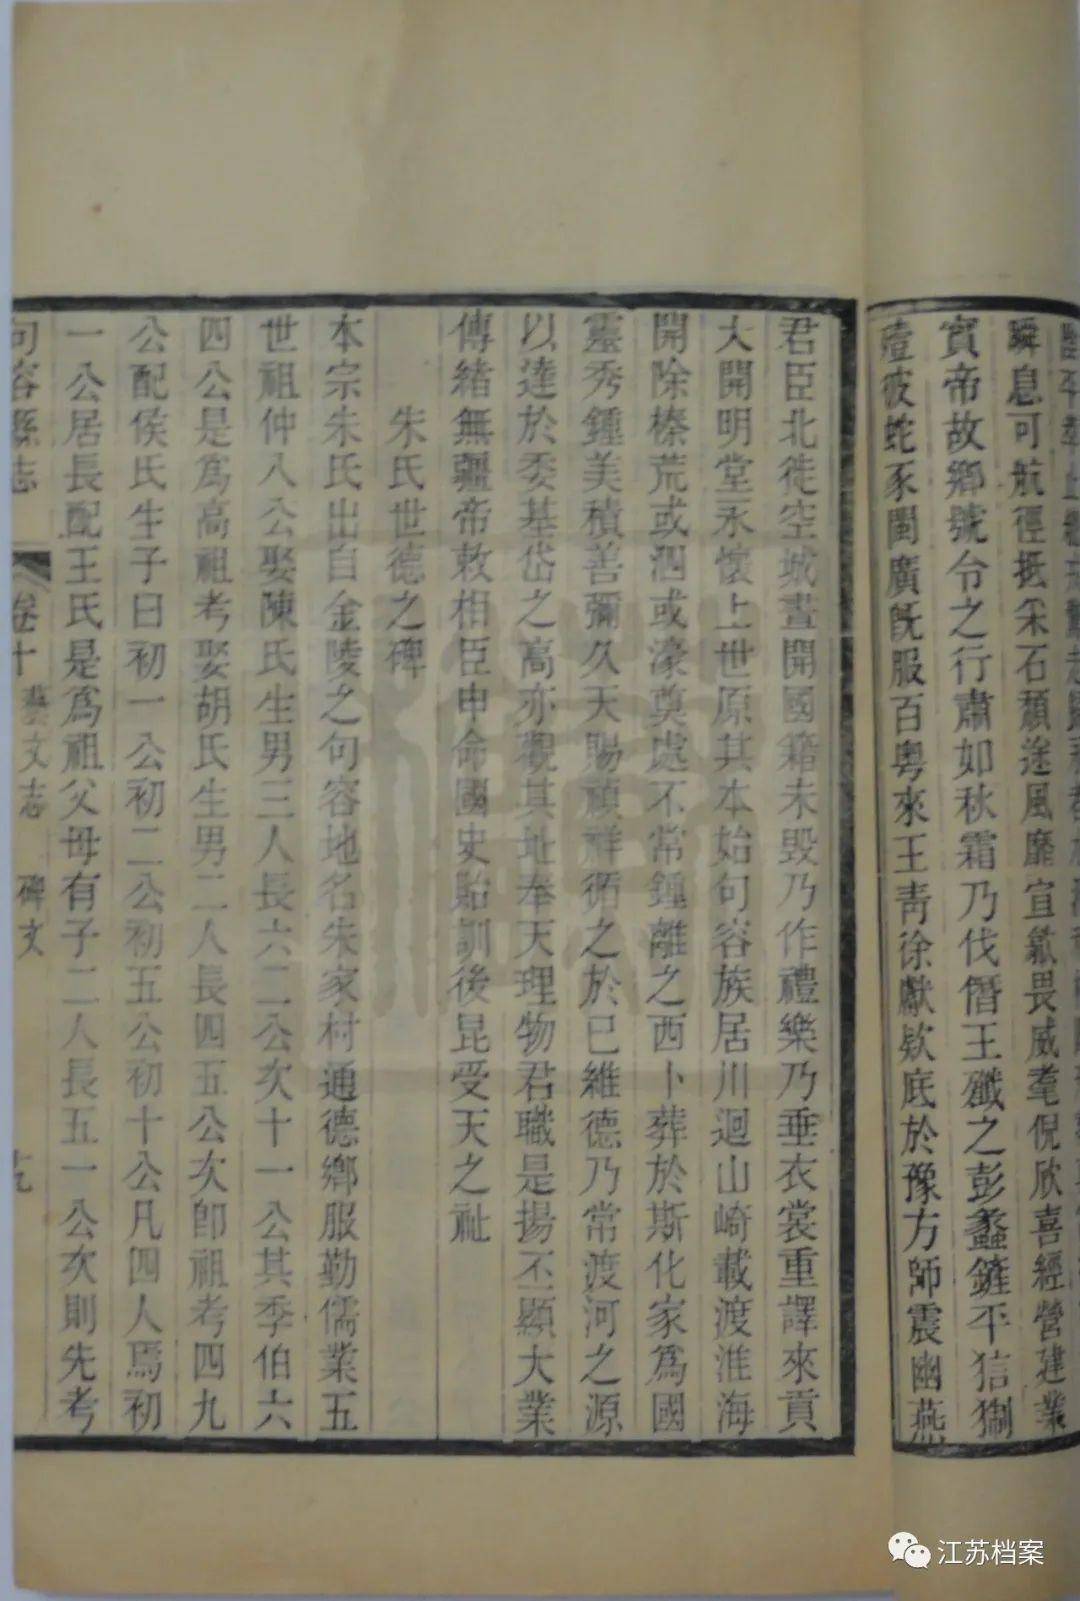 瞬息可航徑抵采石頹途風靡宣歙畏威耄倪欣喜經營建業
實帝故鄉號令之行肅如秋霜乃伐僭王殲之彭蠡鏟平信猘
殪彼蛇豕閩廣既服百粵來王青徐獻欵底於豫方師震幽燕
君臣北徙空城晝開國籍未毀乃作禮樂乃垂衣裳重譯來貢
大開明堂永懷上世原其本始句容族居川迴山崎載渡淮海
開除榛荒或泗或濠奠處不常鍾離之西卜葬於斯化家為國
靈秀鍾美積善彌久天賜禎祥循之於已維德乃常渡河之源
以達於委基岱之高亦觀其址奉天理物君職是揚丕顯大業
傳緒無疆帝敕相臣申命國史貽訓後昆受天之祉
朱氏世德之碑
本宗朱氏出自金陵之句容地名朱家村通德鄉服勤儒業五
世祖仲八公娶陳氏生男三人長六二公次十一公其季伯六
四公是為高祖考娶胡氏生男二人長四五公次即祖考四九
公配侯氏生子曰初一公初二公初五公初十公凡四人焉初
一公居長配王氏是為祖父母有子二人長五一公次則先考
句容縣志 卷十 藝文志 碑文 十九
江苏档案